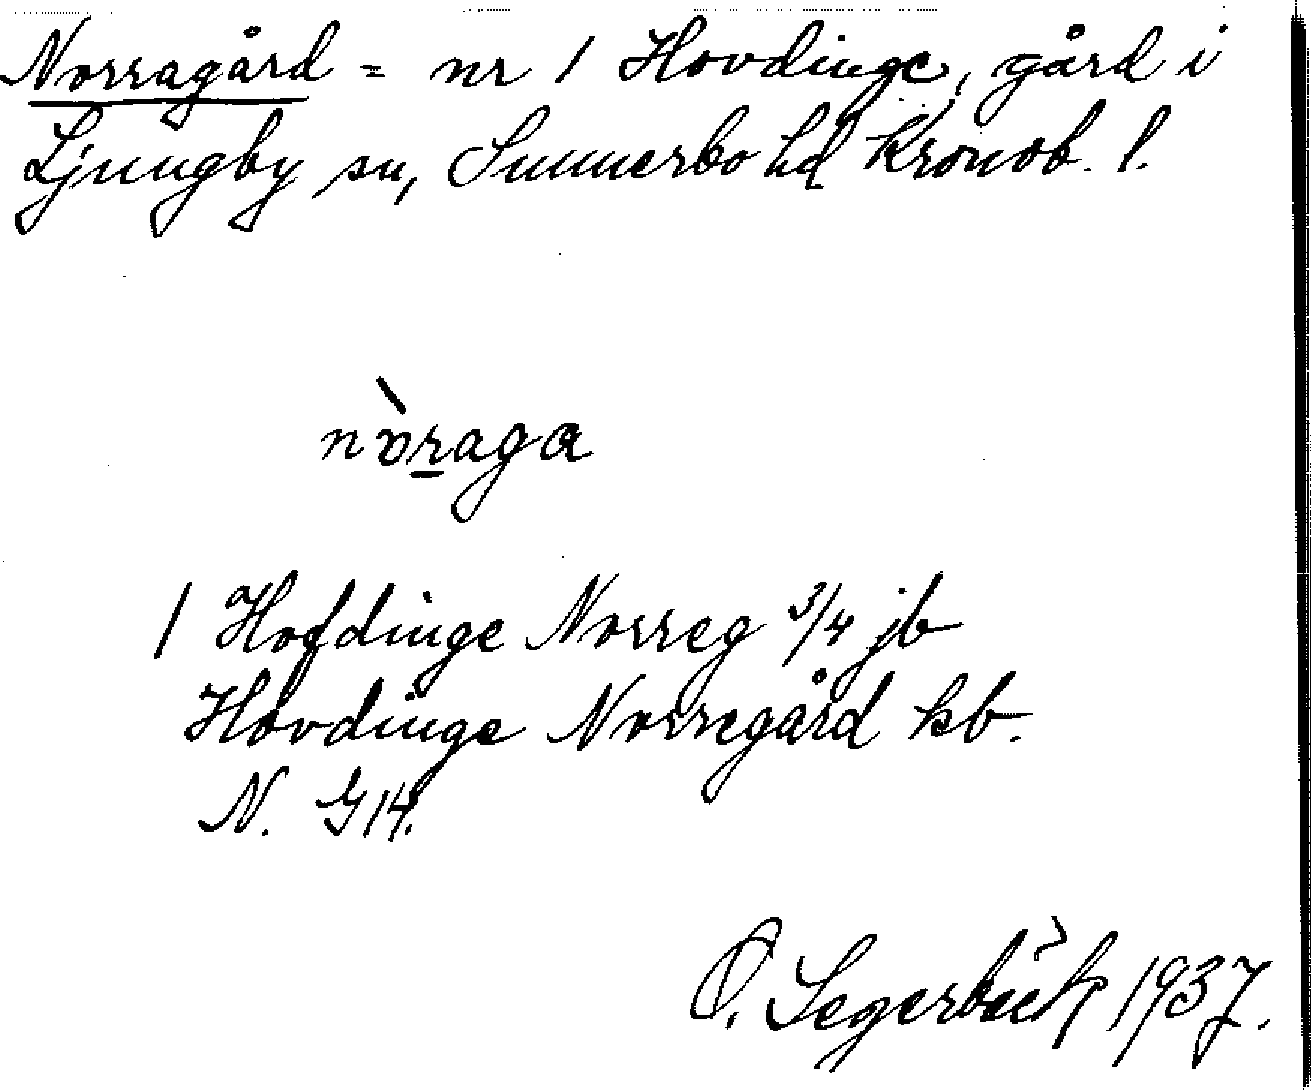 Norragård = nr 1 Hovdinge, gård i
Ljungby sn, Sunnerbo hd Kronob. l.
nòraga
1 Hofdinge Norreg 3/4 jb
Hovdinge Norregård kb.
N. G14.
O. Segerbäck 1937.